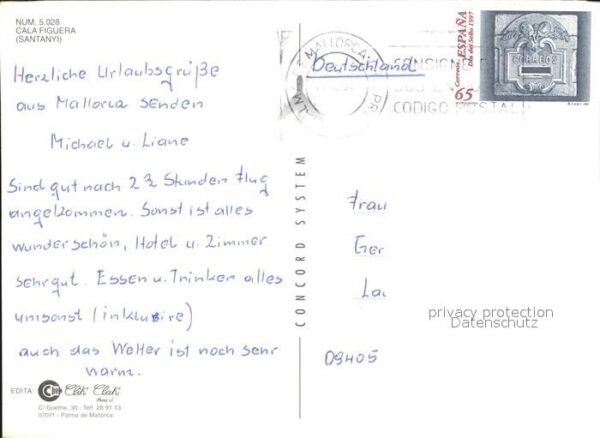 NUM. 5.028
CALA FIGUERA
(SANTANYI)
Herzliche Urlaubsgrüße
aus Mallorca senden
Michael u. Liane
Sind gut nach 2 ½ Stunden Flug
angekommen. Sonst ist alles
wunderschön, Hotel u. Zimmer
sehr gut. Essen u. Trinken alles
umsonst (inklusive)
auch das Wetter ist noch sehr
warm.
EDITA: Clak Clak
C/ Goethe, 30 - Telf. 28 91 13
07011 - Parma de Mallorca
CONCORD SYSTEM
MALLORCA
CONSIGNE
CODIGO POSTAL
Deutschland
Correos ESPAÑA
Día del Sello 1997
65
CORREOS
Frau
Ger
La
09405
privacy protection
Datenschutz